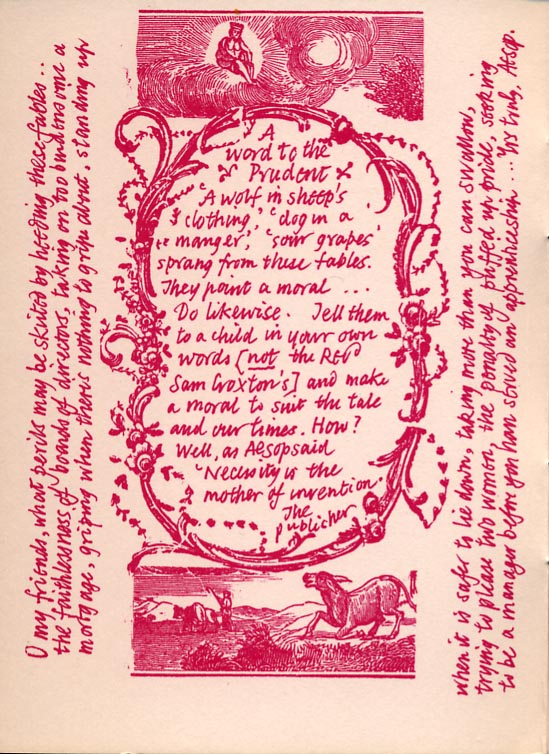 A
word to the
Prudent
'A wolf in sheep's
clothing,' 'dog in a
manger,' 'sour grapes'
sprang from these fables.
They point a moral ...
Do likewise. Tell them
to a child in your own
words [not the Revd
Sam Croxton's] and make
a moral to suit the tale
and our times. How?
Well, as Aesop said
'Necessity is the
mother of invention.'
The
publisher
O my friends, what perils may be skirted by heeding these fables ..
the faithlessness of boards of directors, taking on too burdensome a
mortgage, griping when there's nothing to gripe about, standing up
when it is safer to lie down, taking more than you can swallow,
trying to please two women, the penalty of puffed up pride, seeking
to be a manager before you have served an apprenticeship ... Yrs truly, Aesop.